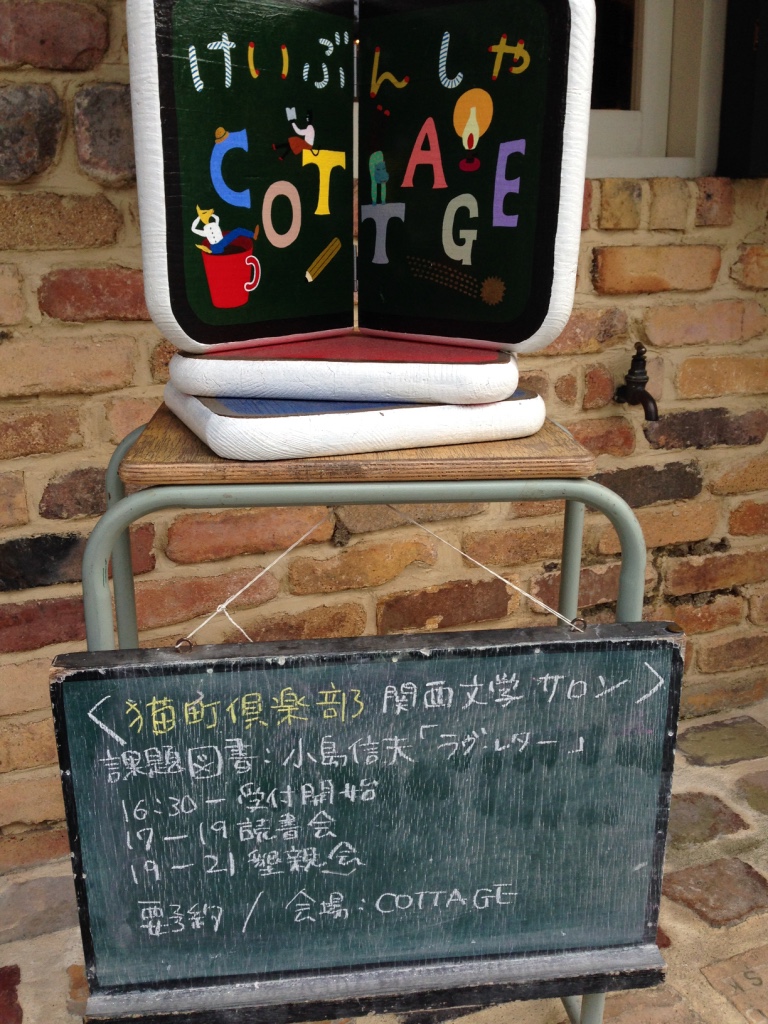 けいぶんしゃ
COTTAGE
〈猫町倶楽部 関西文学サロン〉
課題図書：小島信夫「ラヴ・レター」
16:30－受付開始
17－19 読書会
19－21 懇親会
要予約 / 会場：COTTAGE